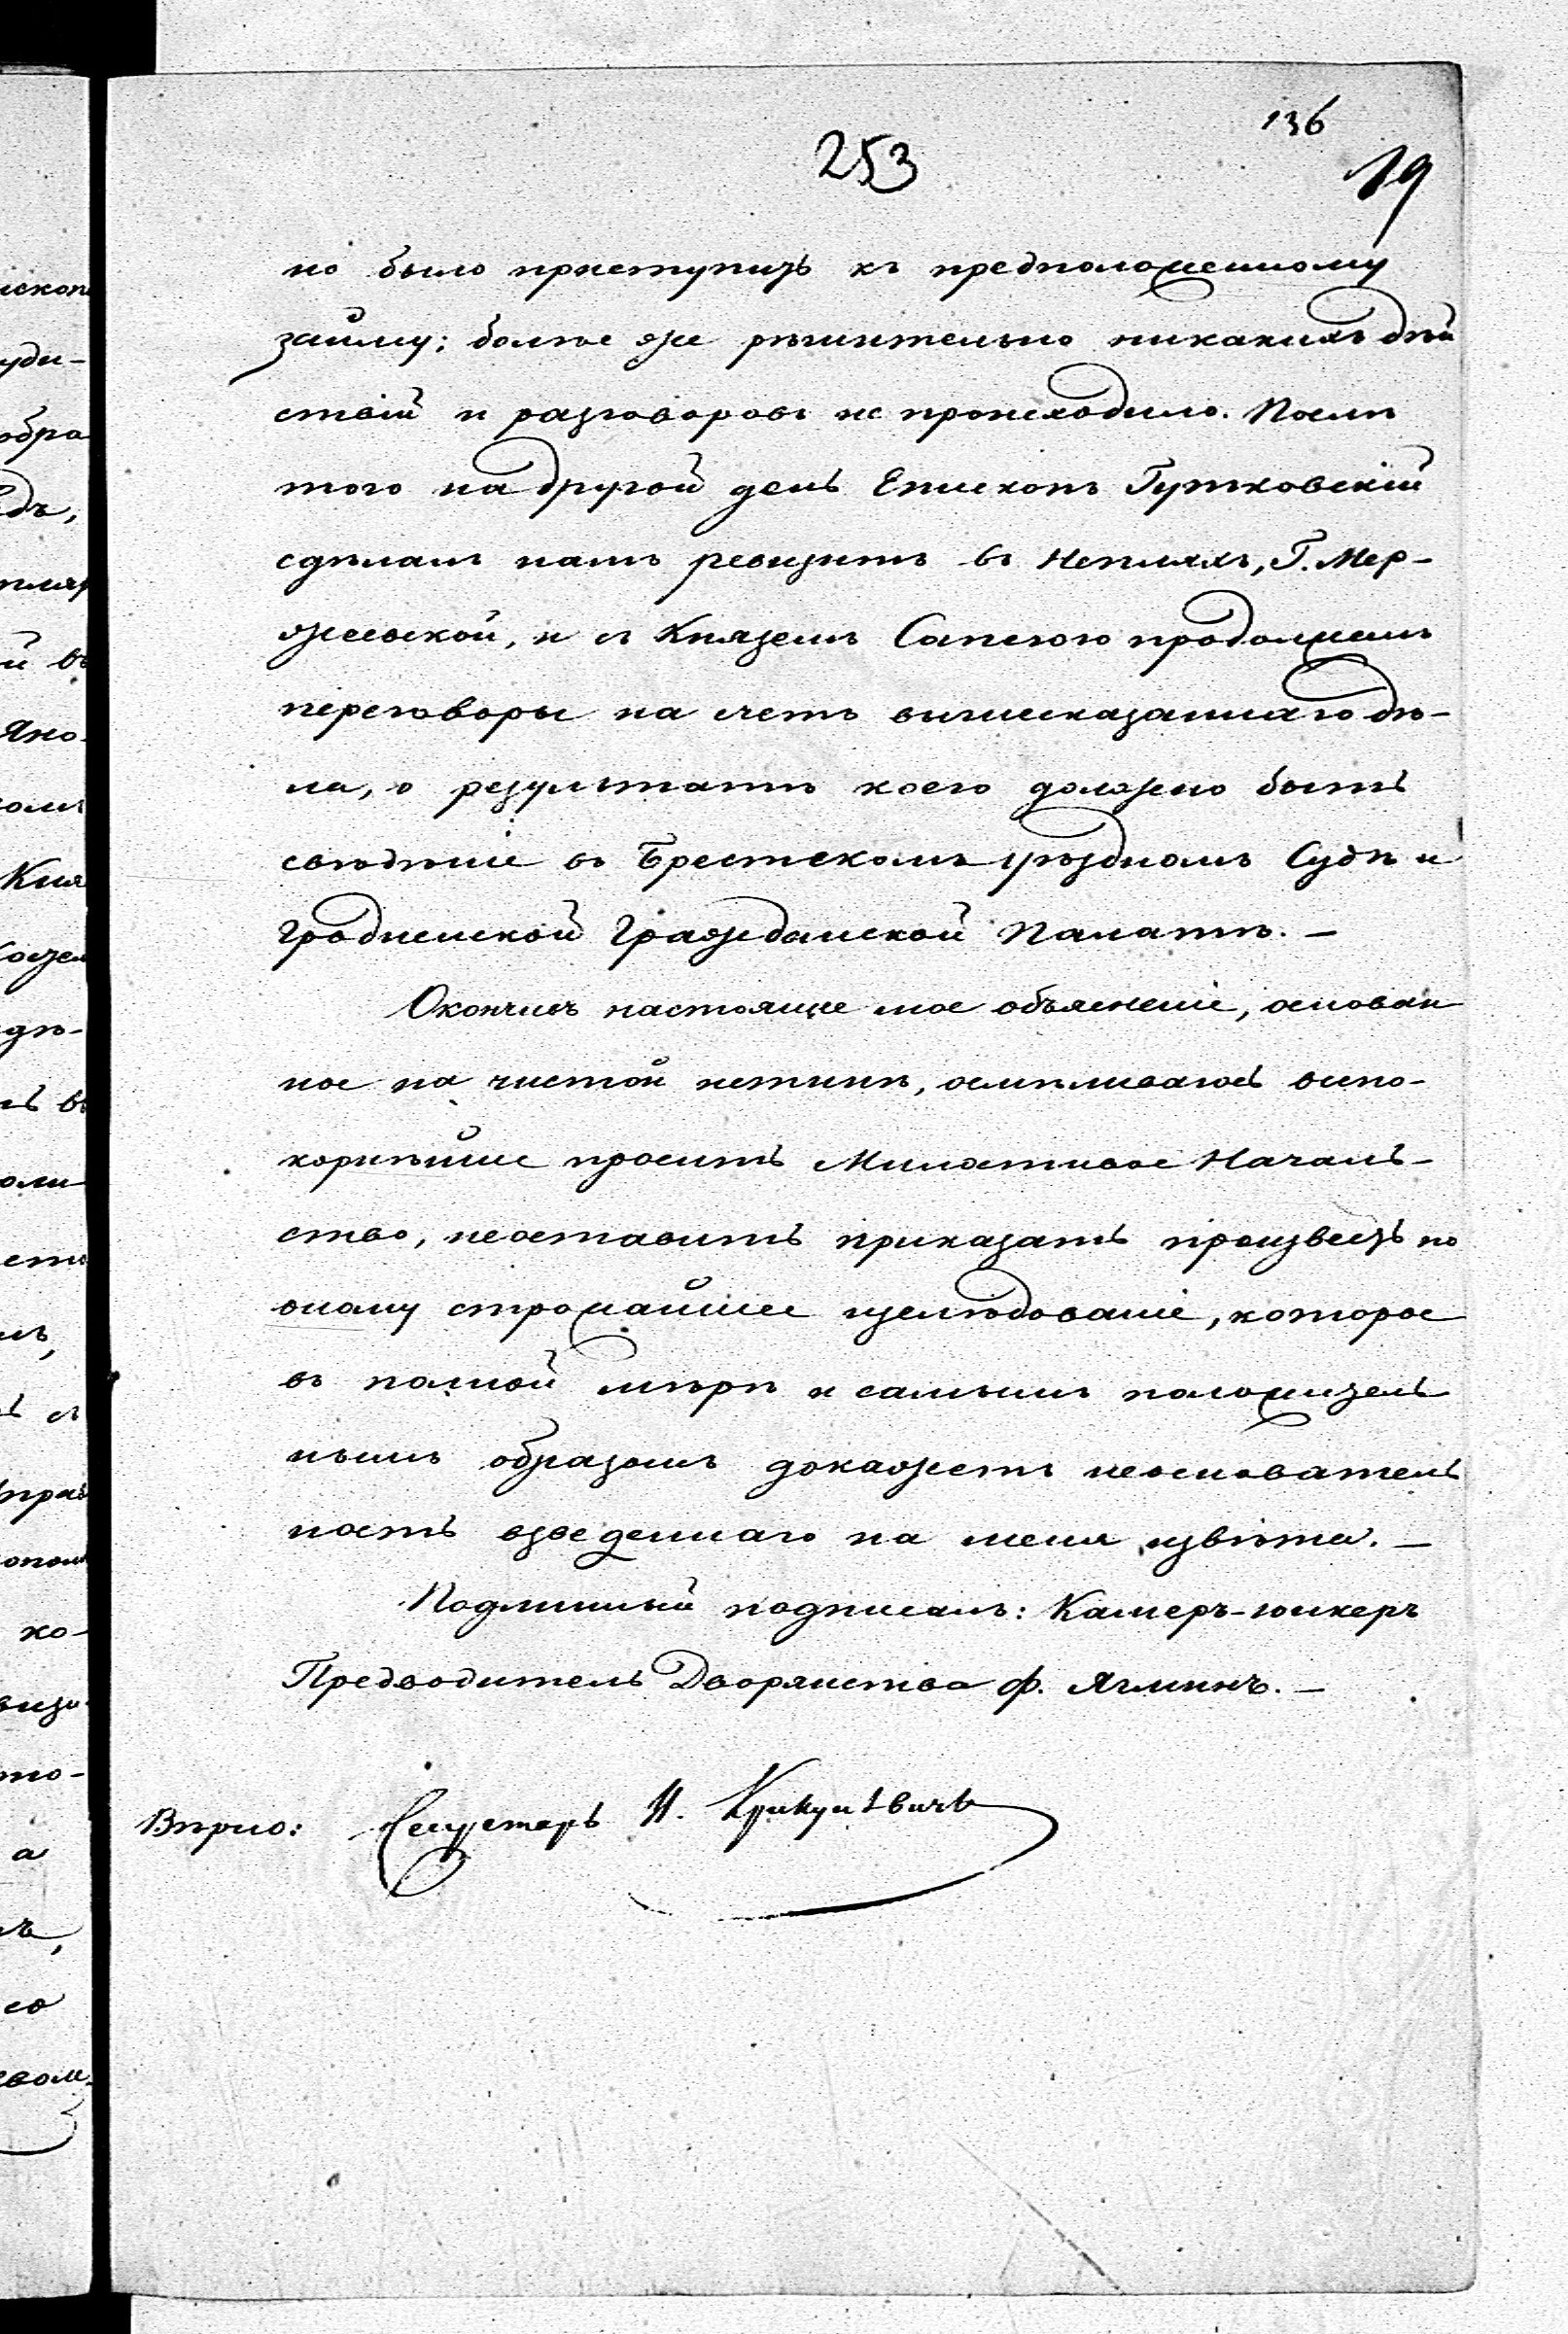 136
253
19
но было приступить къ предположенному
займу; болѣе же рѣшительно никакихъ дѣй
ствій и разговоровъ не происходило. Послѣ
того на другой день Епископъ Гутковскій
сдѣлалъ намъ ревизитъ въ Непляхъ, Г. Мер-
жеевской, и съ Княземъ Сапегою продолжалъ
переговоры на счетъ вышесказаннаго дѣ-
ла, о результатѣ коего должно быть
свѣдѣніе въ Брестскомъ уѣздномъ Судѣ и
Гродненской Гражданской Палатѣ. —
Окончивъ настоящее мое объясненіе, основан
ное на чистой истинѣ, осмѣливаюсь всепо-
корнѣйше просить Милостивое Началь-
ство, неоставить приказать произвесть по
оному строжайшее изслѣдованіе, которое
въ полной мѣрѣ и самымъ положитель
нымъ образомъ докажетъ неоснователь
ность взведеннаго на меня извѣта. —
Подлинный подписалъ: Камеръ-юнкеръ
Предводитель Дворянства Ф. Ягминъ. —
Вѣрно: Секретарь И.